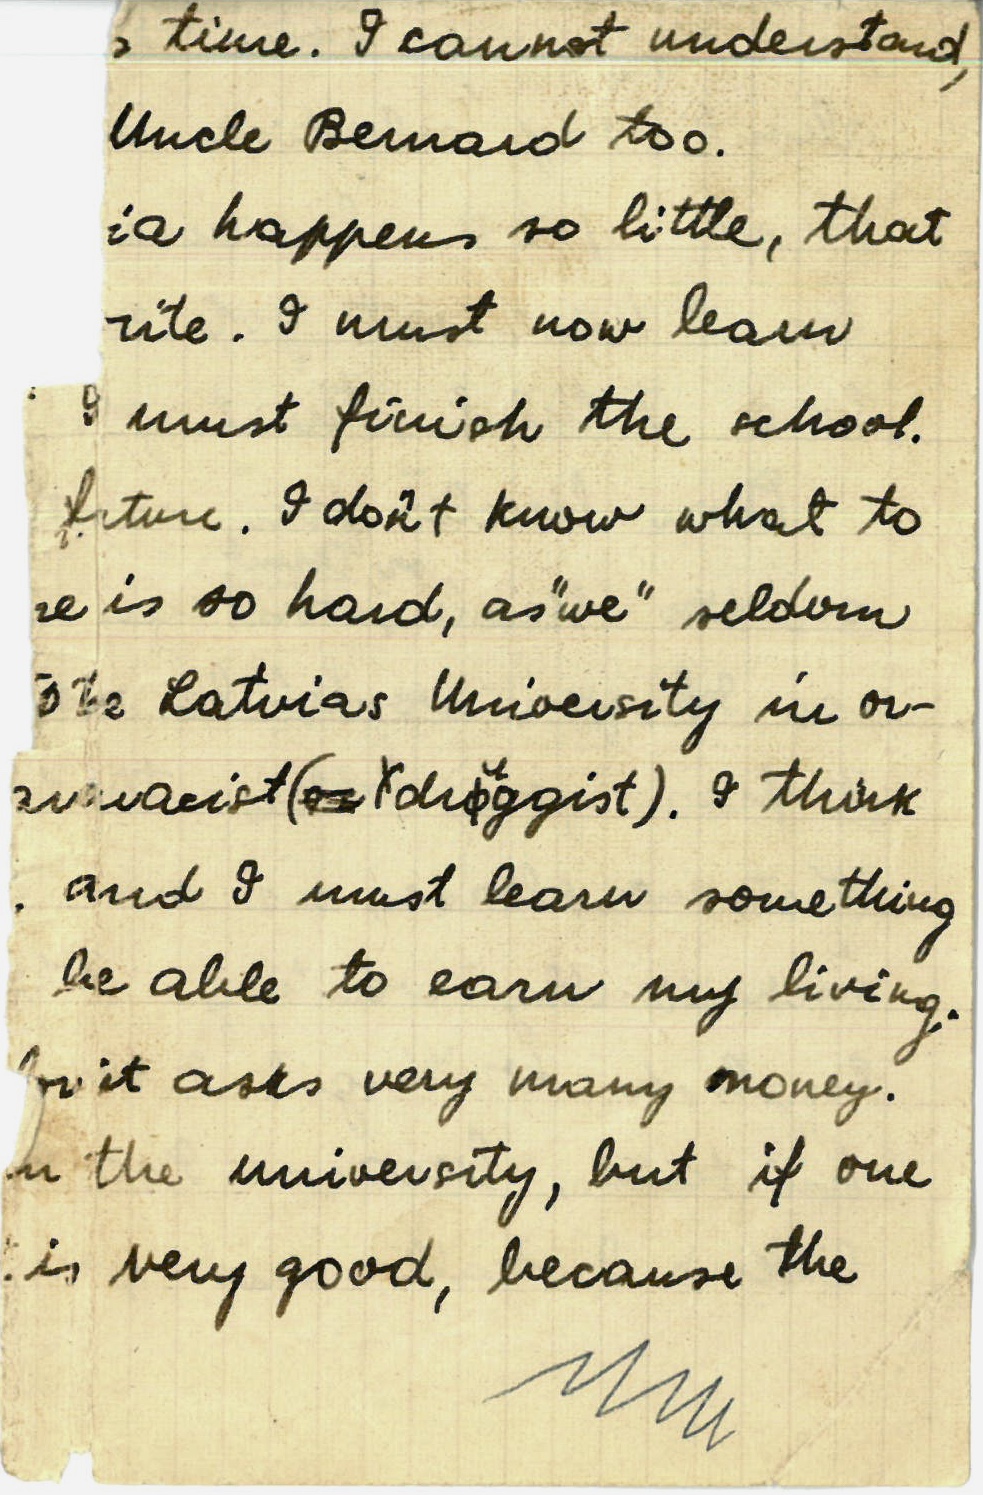 s time. I cannot understand,
Uncle Bernard too.
ia happens so little, that
rite. I must now learn
I must finish the school.
future. I don't know what to
re is so hard, as "we" seldom
to the Latvias University in or-
armacist (druggist). I think
. and I must learn something
be able to earn my living.
for it asks very many money.
in the university, but if one
t is very good, because the